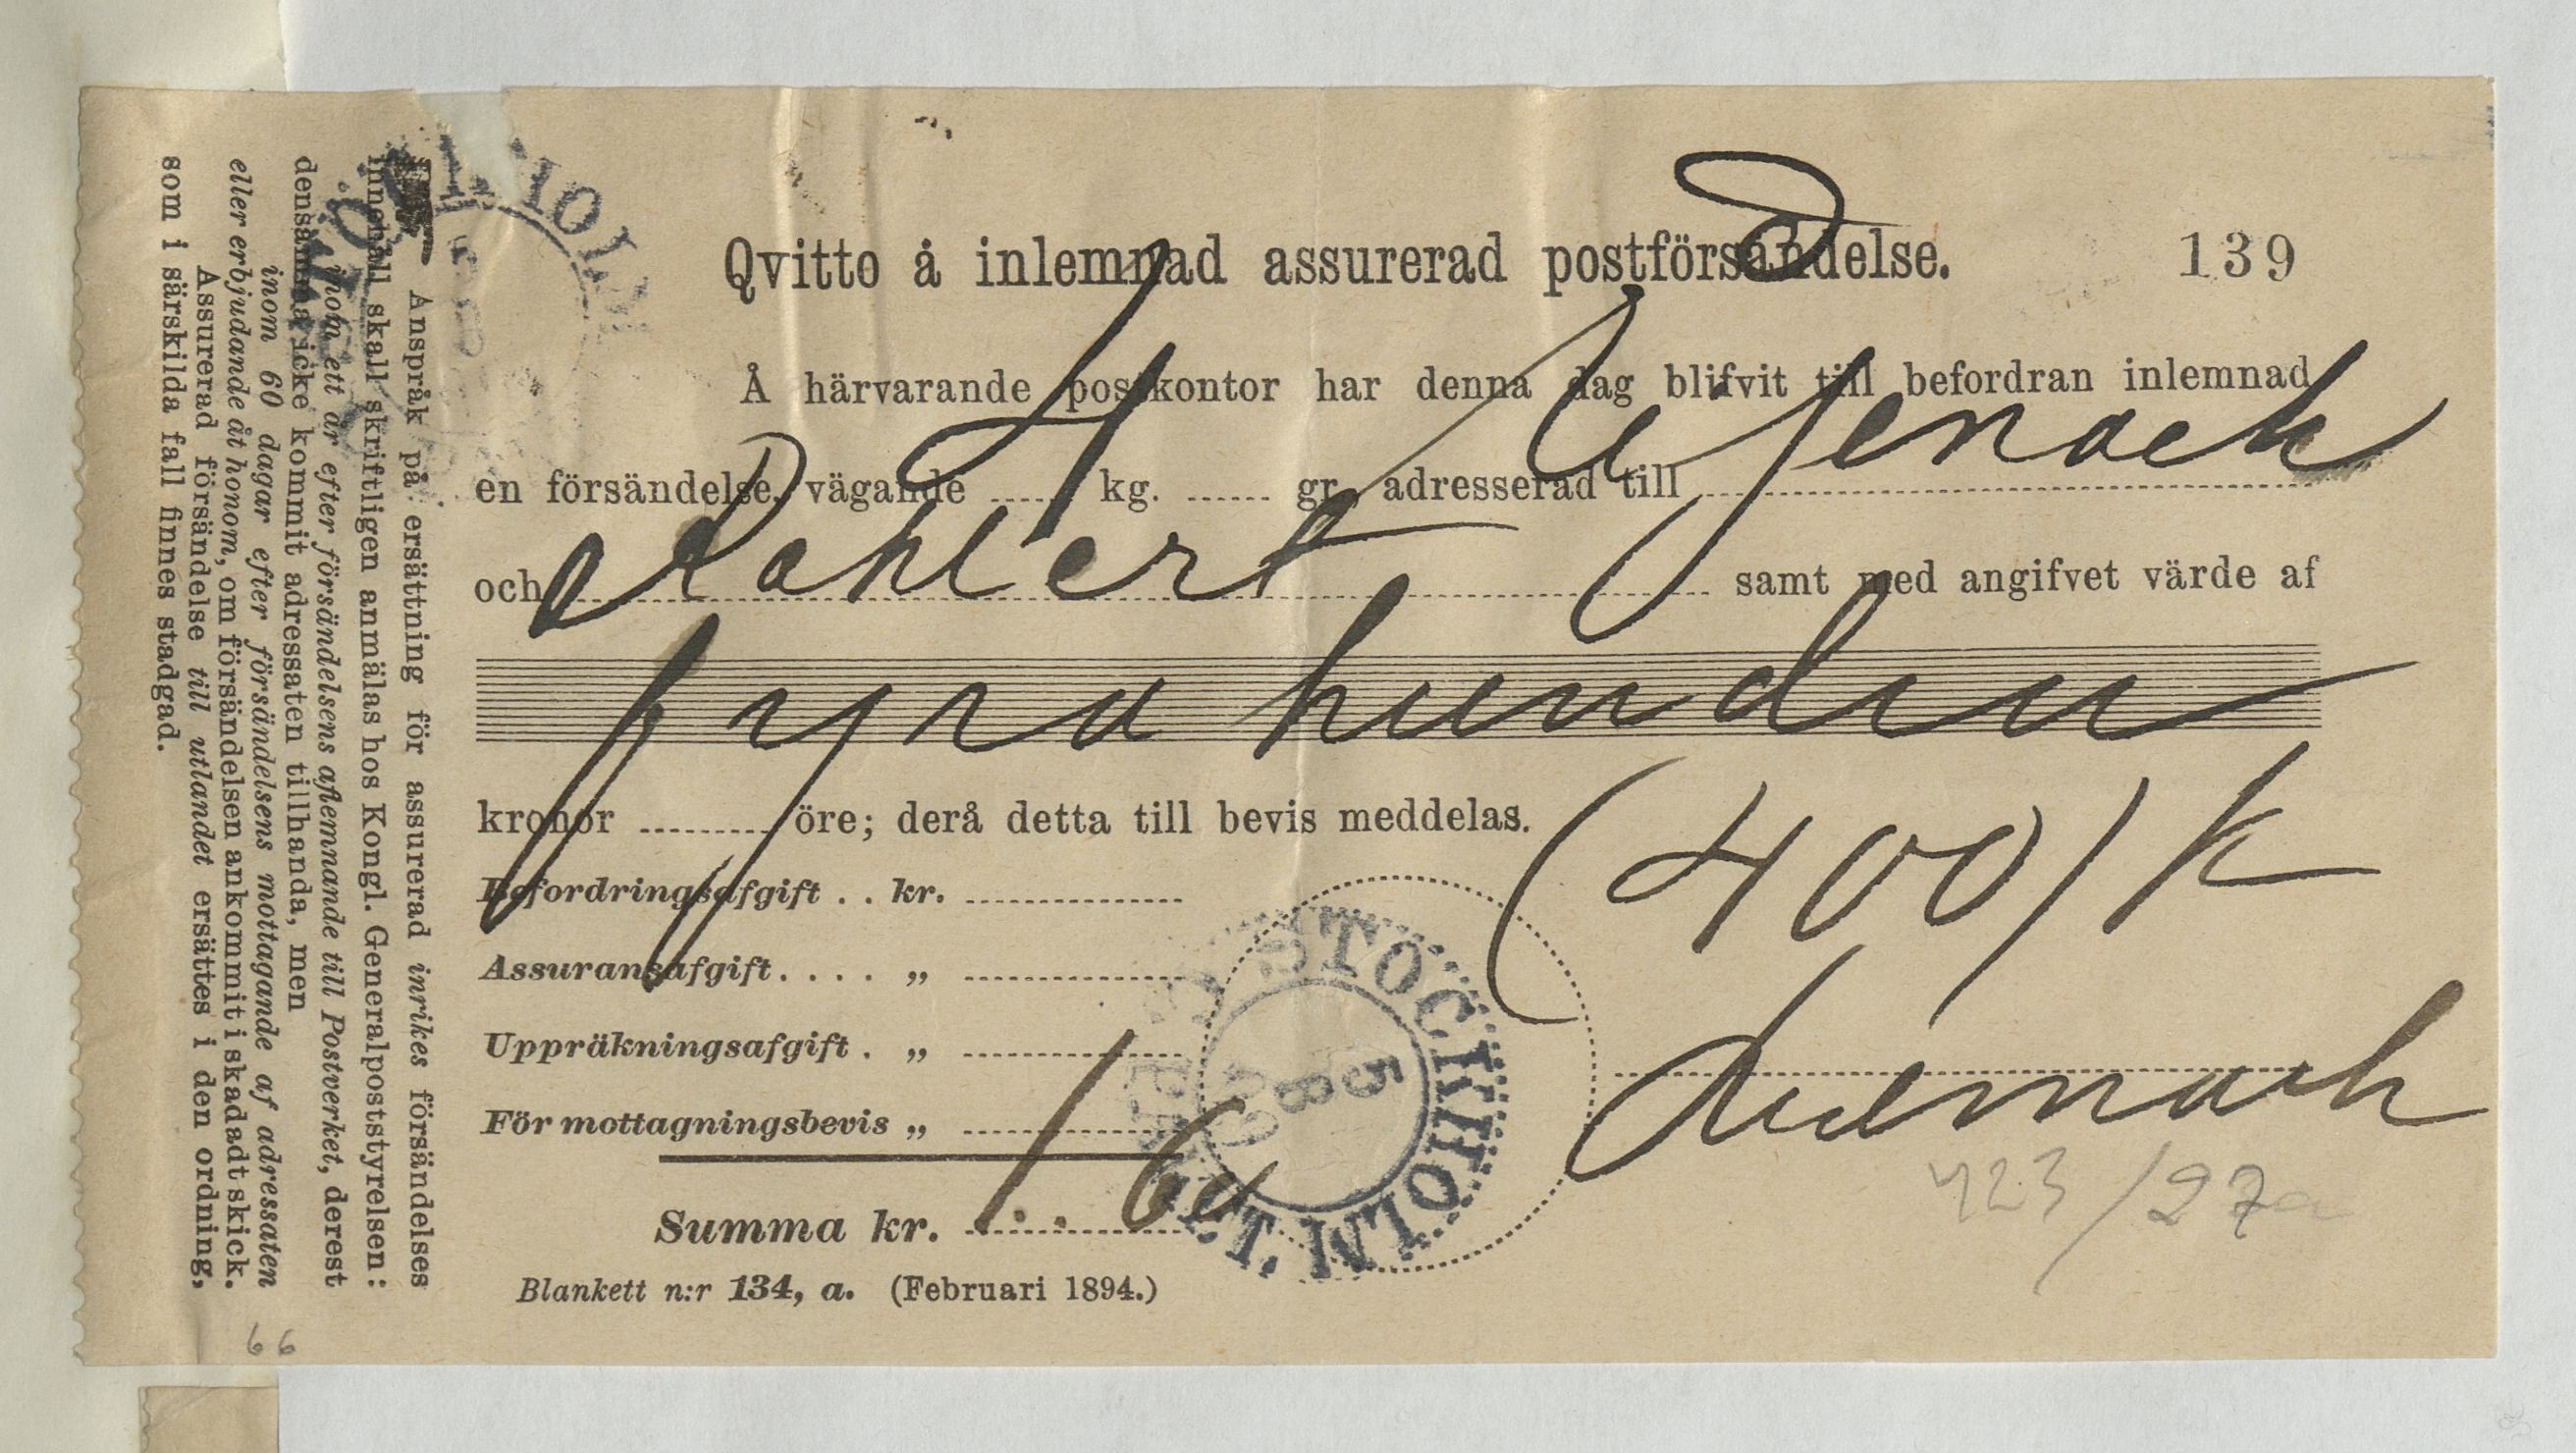 Qvitto å inlemnad assurerad postförsändelse.
139
Å härvarande postkontor har denna dag blifvit till befordran inlemnad
en försändelse, vägande ........ kg. ...... gr. adresserad till
och samt med angifvet värde af
fyra hundra
kronor ......... öre; derå detta till bevis meddelas.
(400) k
Befordringsafgift . . kr.
Assuransafgift. . . . „
Uppräkningsafgift . „
För mottagningsbevis „
Summa kr.
STOCKHOLM
5
8
99
PAKET.
423/27a
Blankett n:r 134, a. (Februari 1894.)
Anspråk på ersättning för assurerad inrikes försändelses
innehåll skall skriftligen anmälas hos Kongl. Generalpoststyrelsen:
inom ett år efter försändelsens aflemnande till Postverket, derest
densamma icke kommit adressaten tillhanda, men
inom 60 dagar efter försändelsens mottagande af adressaten
eller erbjudande åt honom, om försändelsen ankommit i skadadt skick.
Assurerad försändelse till utlandet ersättes i den ordning,
som i särskilda fall finnes stadgad.
66